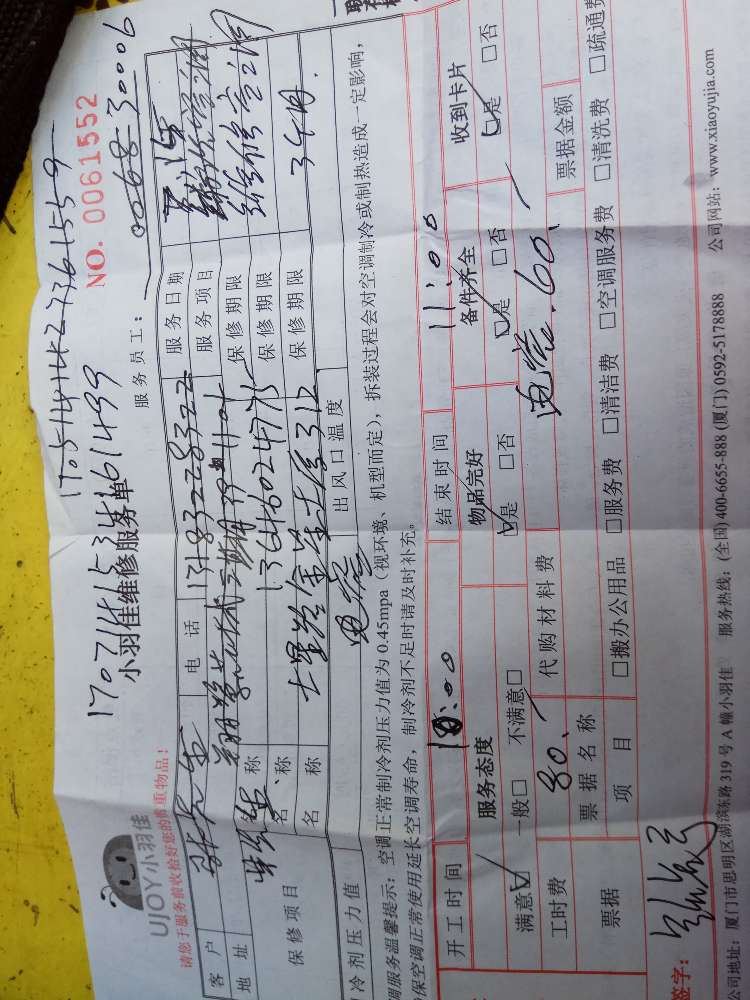 17051414273615559
1707141534161499
UJOY小羽佳
请您于服务前收拾好您的贵重物品!
小羽佳维修服务单
NO. 0061552
服务员工: 0068 30006
客户 电话 13183228322 服务日期
地址 服务项目
名称 13646024775 保修期限
保修项目 名称 保修期限
名称 七星路金星大厦312 保修期限 3个月.
制冷剂压力值 电瓷 出风口温度
调服务温馨提示:空调正常制冷剂压力值为 0.45mpa(视环境、机型而定),拆装过程会对空调制冷或制热造成一定影响,
保空调正常使用延长空调寿命,制冷剂不足时请及时补充。
开工时间 10:00 结束时间 11:00
服务态度 物品完好 备件齐全 收到卡片
满意☑ 一般□ 不满意□ ☑是 □否 ☑是 □否 ☑是 □否
工时费 80. 代购材料费 60.
票据 票据名称 票据金额
项目 □搬办公用品 □服务费 □清洁费 □空调服务费 □清洗费 □疏通费
签字:
公司地址:厦门市思明区湖滨东路 319 号 A 幢小羽佳 服务热线:(全国) 400-6655-888 (厦门) 0592-5178888 公司网站:www.xiaoyujia.com